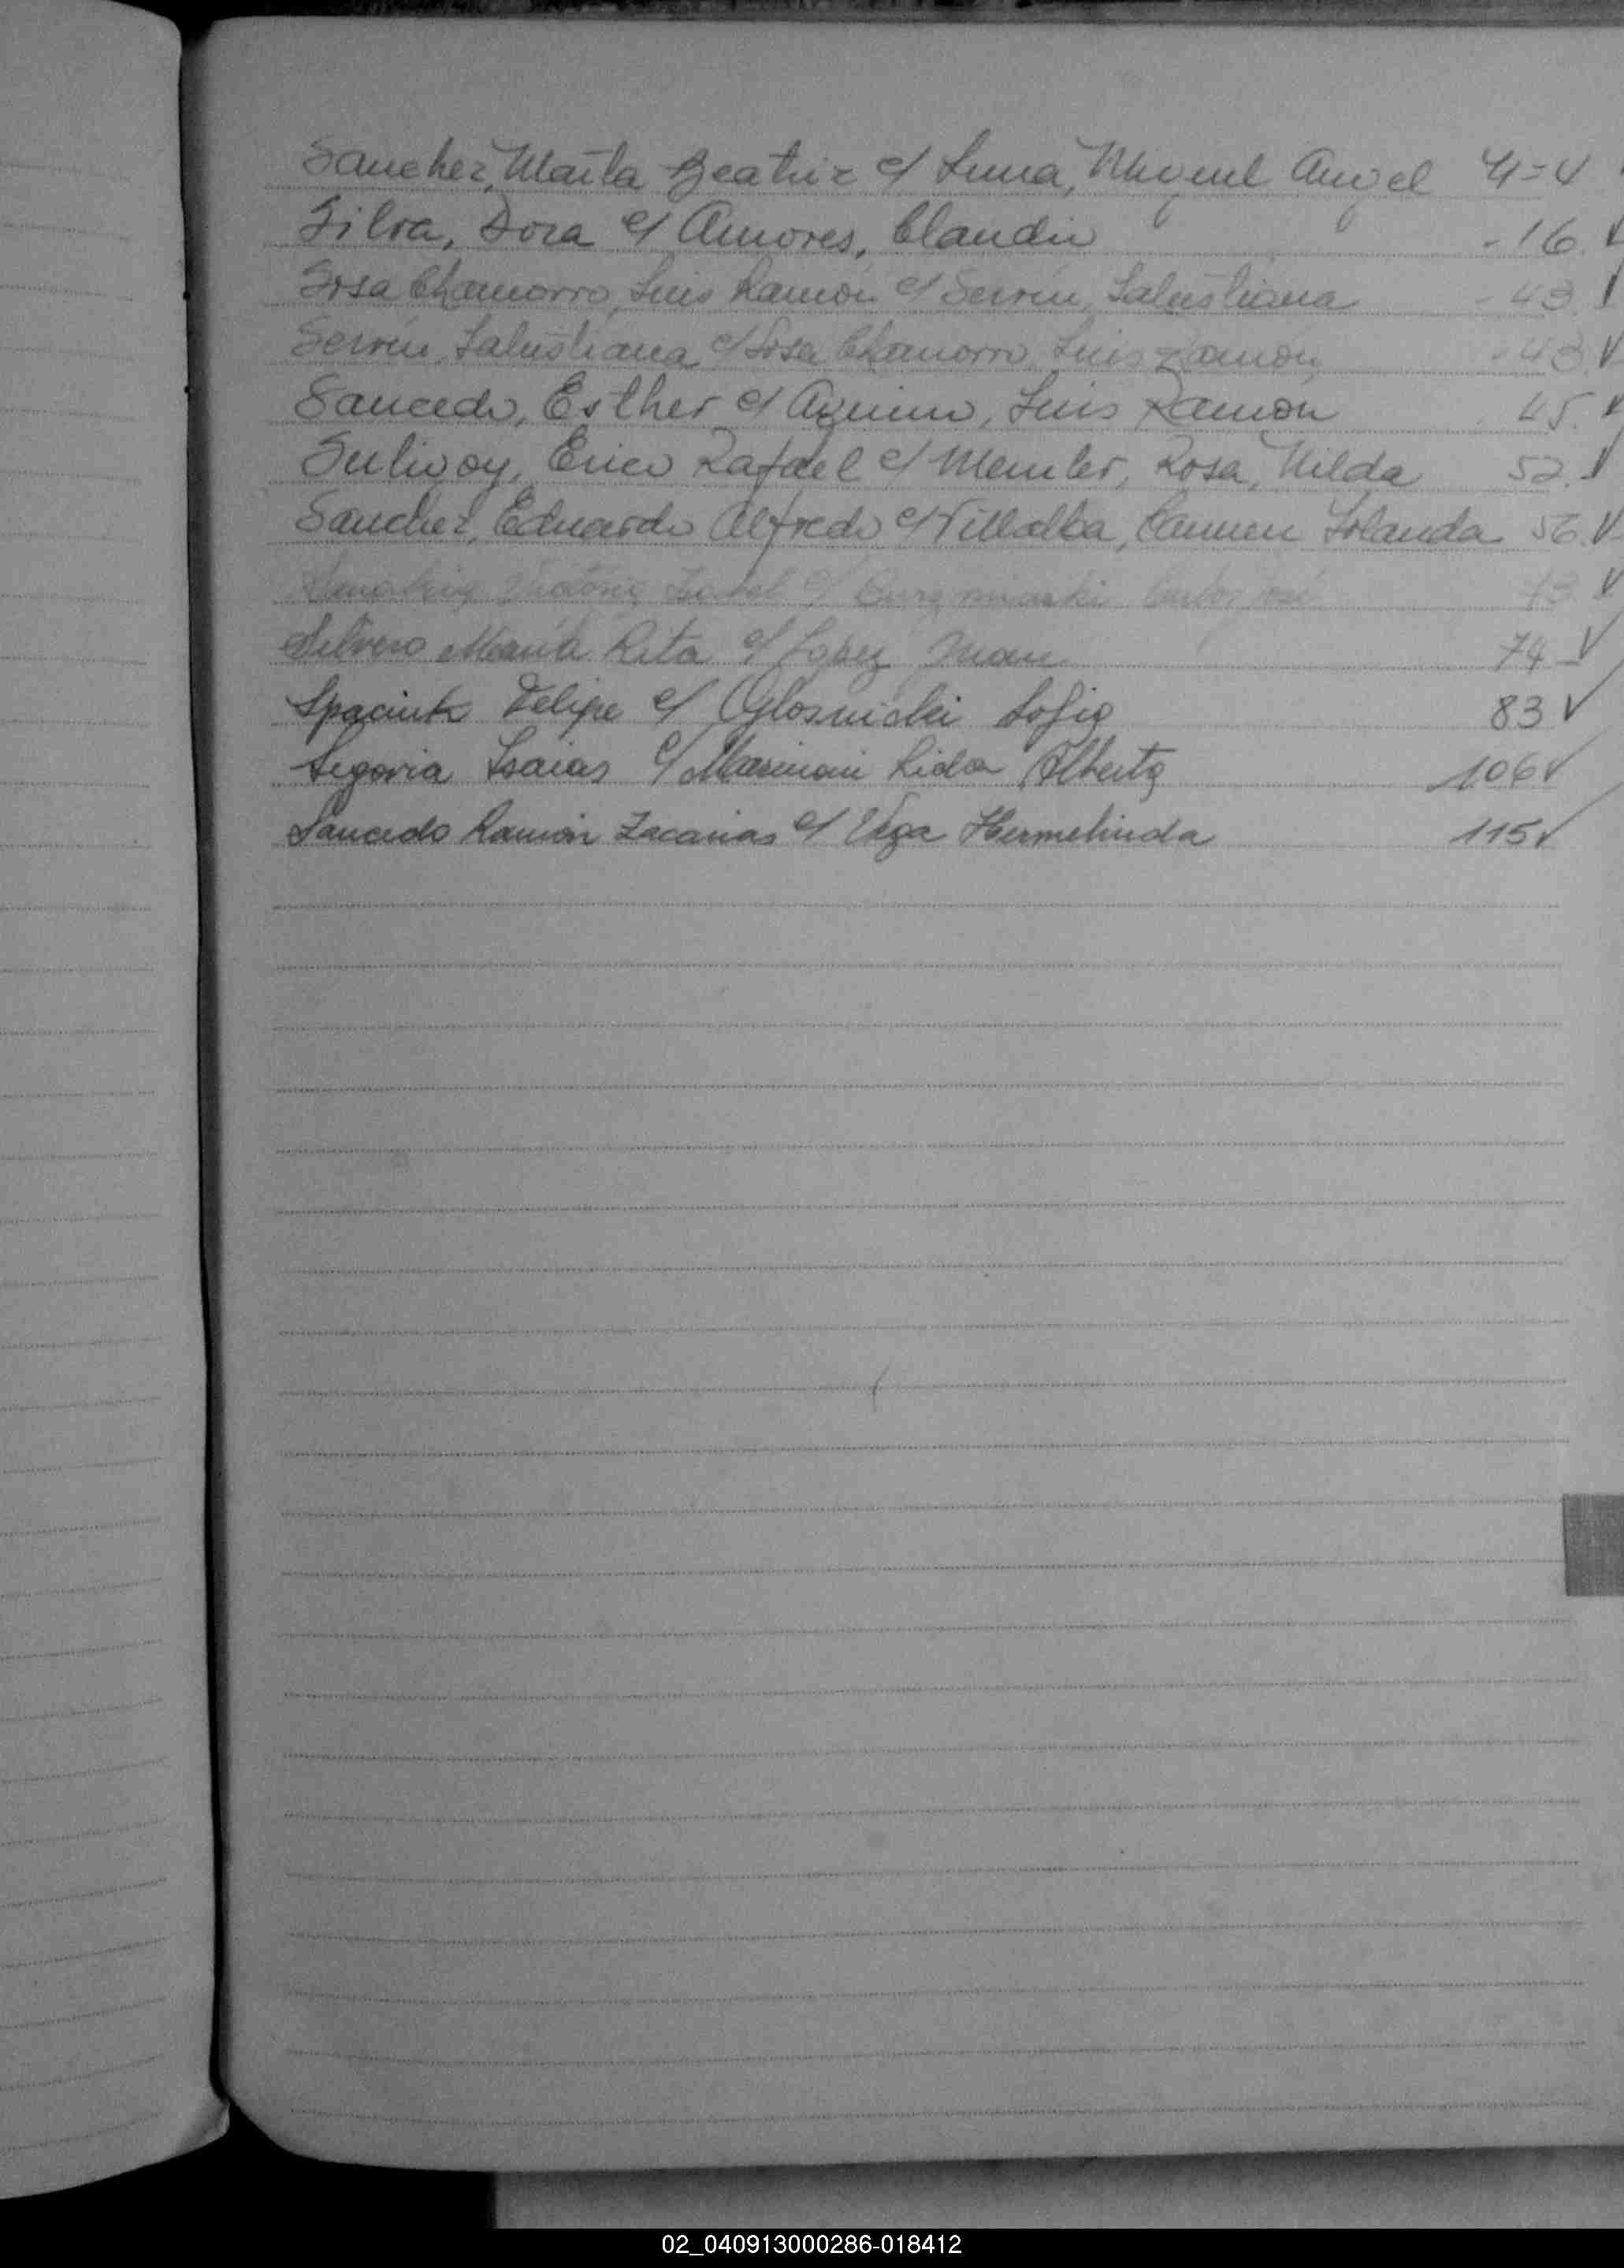 Sanchez, Marta Beatriz c/ Luna, Miguel Angel
Silva, Dora c/ Amores, Claudio - 16. √
Sosa Chamorro, Luis Ramón c/ Servín, Salustiana - 43. √
Servín, Salustiana c/ Sosa Chamorro, Luis Ramón - 43. √
Saucedo, Esther c/ Aquino, Luis Ramón 45. √
Sulivoy, Erico Rafael c/ Rosa, Nilda 52. √
Sanchez, Eduardo Alfredo c/ Villalba, Carmen Iolanda 56. √
Isabel c/ José 73 √
Silvero María Rita c/ Lopez Juan 74 √
Spaciuk Felipe c/ Sofia 83 √
Segovia Isaias c/ Lida Alberta 106 √
Saucedo Ramón Zacarias c/ Vega Hermelinda 115 √
02_040913000286-018412